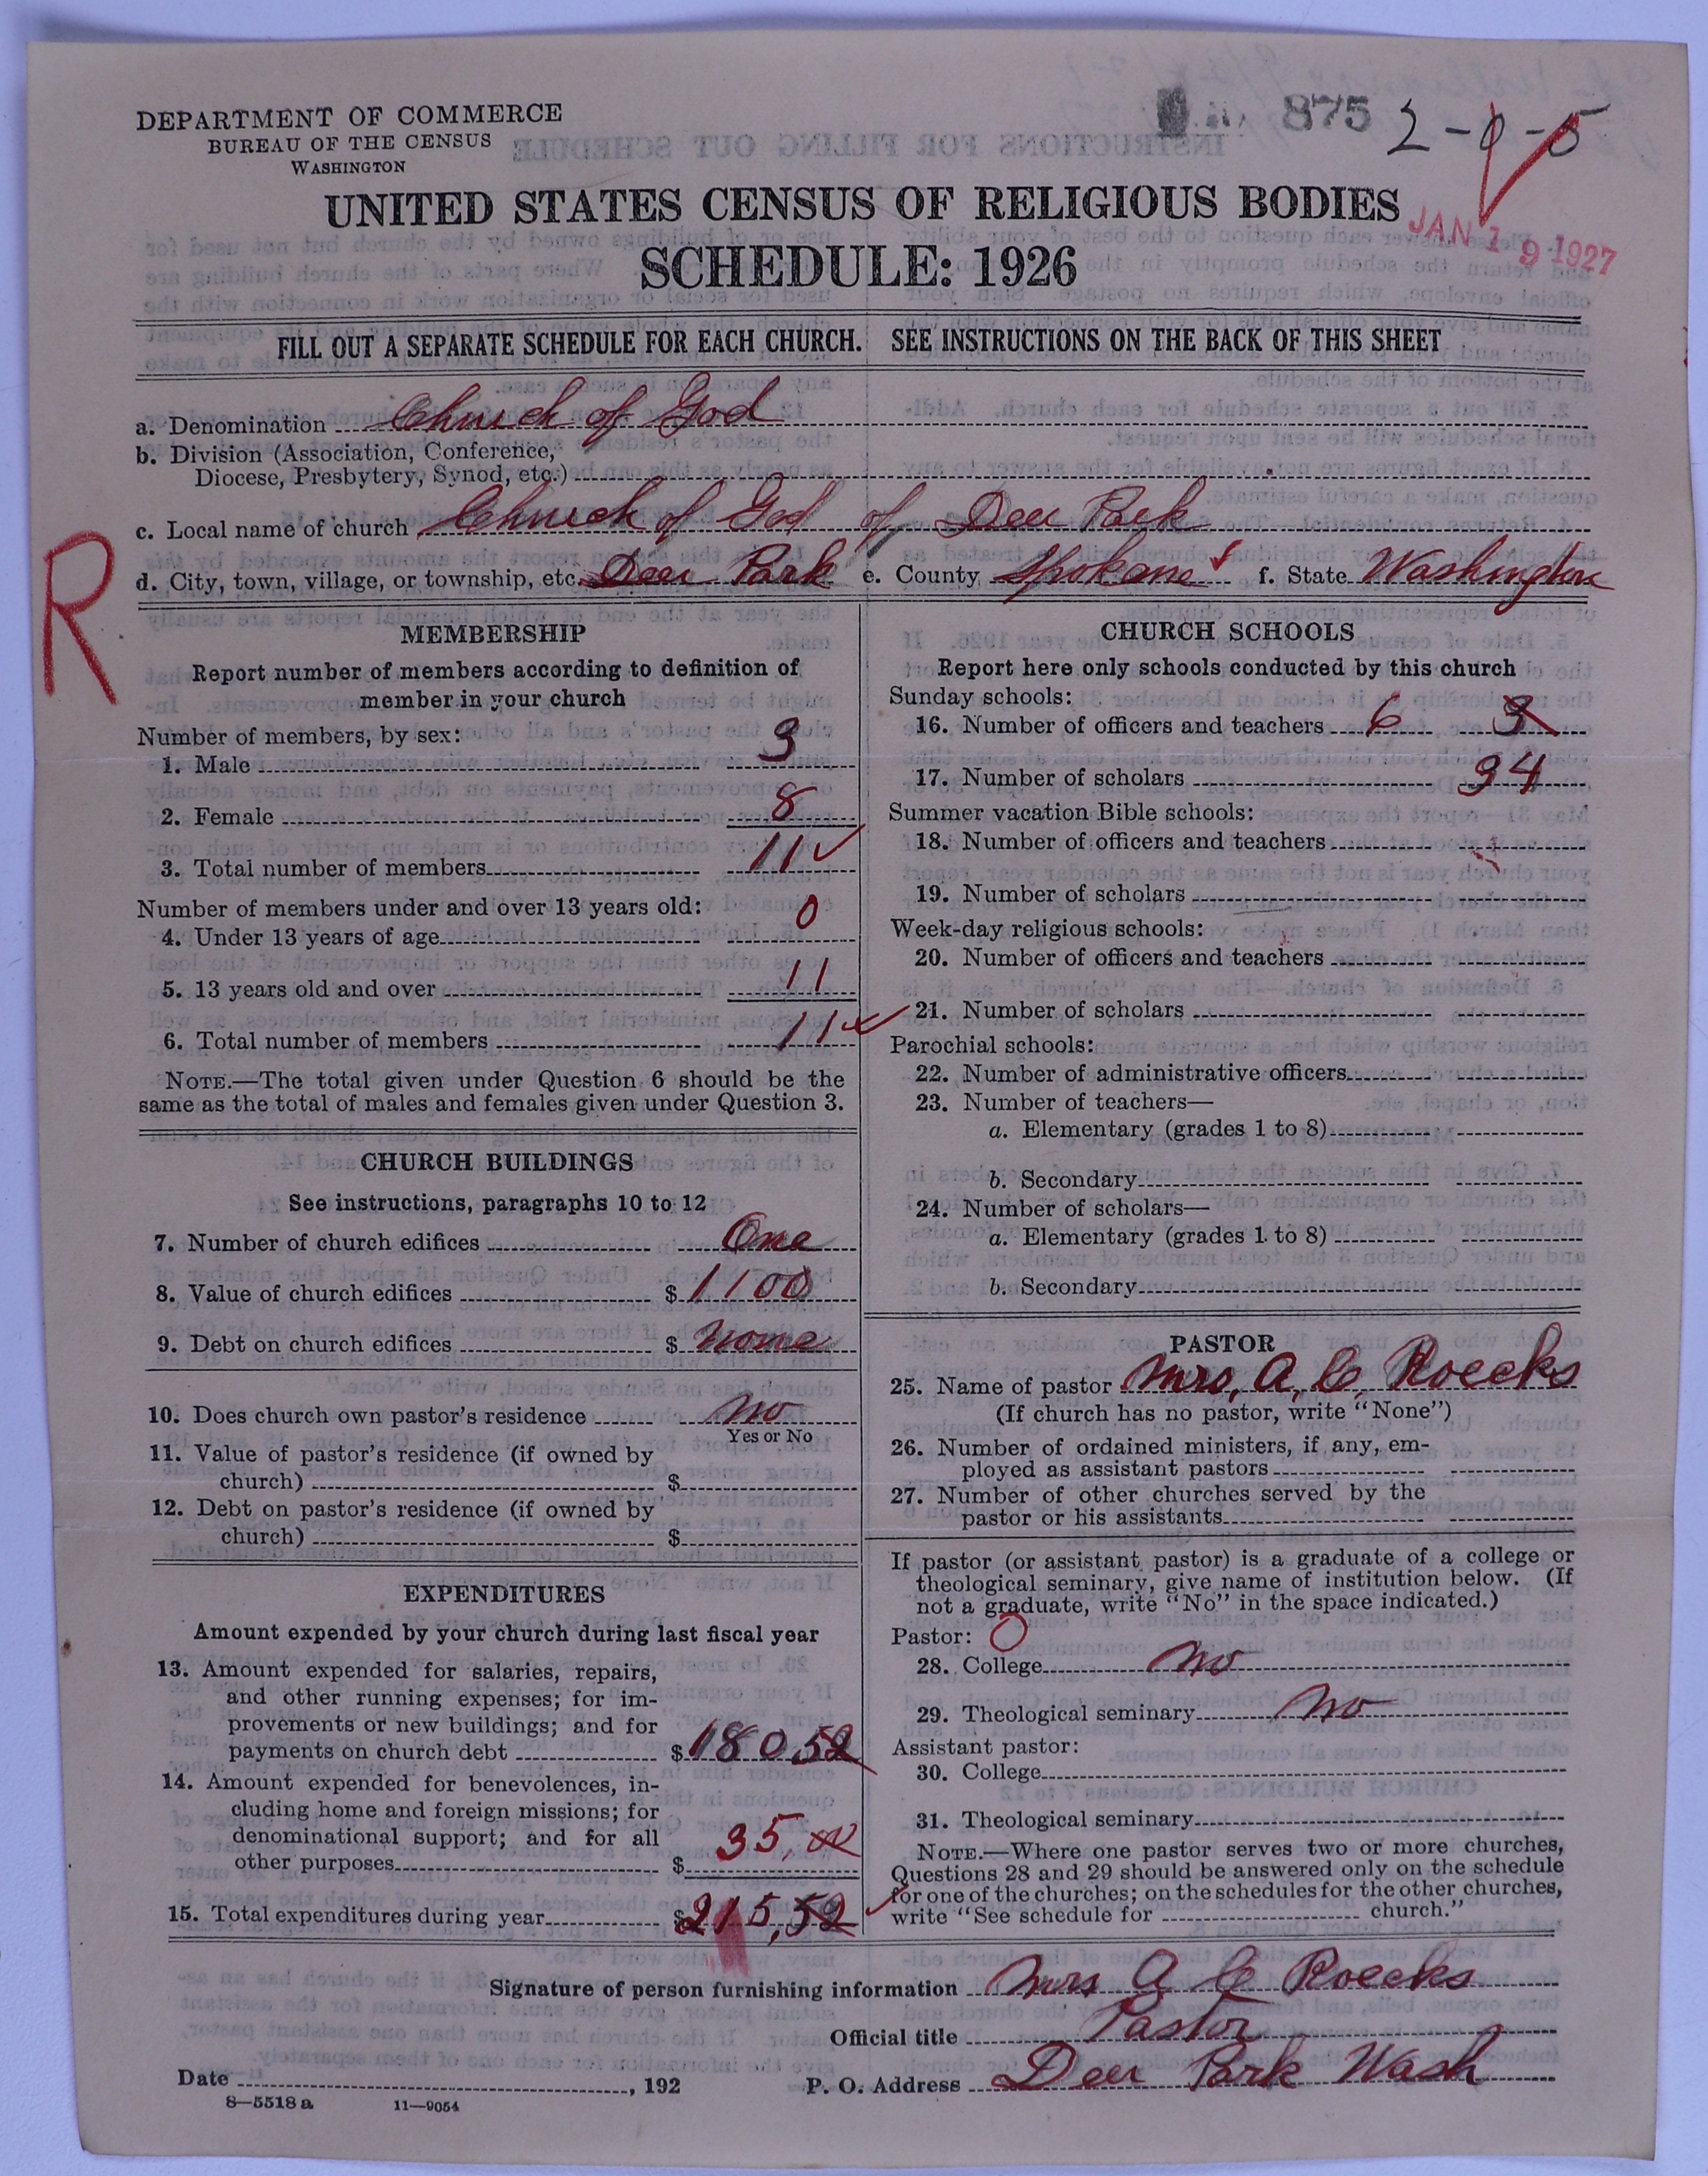 875 2-0-5
DEPARTMENT OF COMMERCE
BUREAU OF THE CENSUS
WASHINGTON
UNITED STATES CENSUS OF RELIGIOUS BODIES
JAN 19 1927
SCHEDULE: 1926
FILL OUT A SEPARATE SCHEDULE FOR EACH CHURCH. SEE INSTRUCTIONS ON THE BACK OF THIS SHEET
a. Denomination Church of God
b. Division (Association, Conference,
Diocese, Presbytery, Synod, etc.)
c. Local name of church Church of God of Deer Park
d. City, town, village, or township, etc. Deer Park e. County Spokane f. State Washington
R
MEMBERSHIP
Report number of members according to definition of
member in your church
Number of members, by sex:
1. Male 3
2. Female 8
3. Total number of members 11
Number of members under and over 13 years old:
4. Under 13 years of age 0
5. 13 years old and over 11
6. Total number of members 11
NOTE.—The total given under Question 6 should be the
same as the total of males and females given under Question 3.
CHURCH BUILDINGS
See instructions, paragraphs 10 to 12
7. Number of church edifices One
8. Value of church edifices $ 1100
9. Debt on church edifices $ none
10. Does church own pastor's residence no
Yes or No
11. Value of pastor's residence (if owned by
church) $
12. Debt on pastor's residence (if owned by
church) $
EXPENDITURES
Amount expended by your church during last fiscal year
13. Amount expended for salaries, repairs,
and other running expenses; for im-
provements or new buildings; and for
payments on church debt $ 180.52
14. Amount expended for benevolences, in-
cluding home and foreign missions; for
denominational support; and for all
other purposes $ 35.00
15. Total expenditures during year $ 215.52
CHURCH SCHOOLS
Report here only schools conducted by this church
Sunday schools:
16. Number of officers and teachers 6 3
17. Number of scholars 34
Summer vacation Bible schools:
18. Number of officers and teachers
19. Number of scholars
Week-day religious schools:
20. Number of officers and teachers
21. Number of scholars
Parochial schools:
22. Number of administrative officers
23. Number of teachers—
a. Elementary (grades 1 to 8)
b. Secondary
24. Number of scholars—
a. Elementary (grades 1 to 8)
b. Secondary
PASTOR
25. Name of pastor Mrs. A. C. Roecks
(If church has no pastor, write "None")
26. Number of ordained ministers, if any, em-
ployed as assistant pastors
27. Number of other churches served by the
pastor or his assistants
If pastor (or assistant pastor) is a graduate of a college or
theological seminary, give name of institution below. (If
not a graduate, write "No" in the space indicated.)
Pastor: 0
28. College no
29. Theological seminary no
Assistant pastor:
30. College
31. Theological seminary
NOTE.—Where one pastor serves two or more churches,
Questions 28 and 29 should be answered only on the schedule
for one of the churches; on the schedules for the other churches,
write "See schedule for church."
Signature of person furnishing information Mrs A C Roecks
Official title Pastor
Date , 192 P. O. Address Deer Park Wash
8—5518 a 11—9054